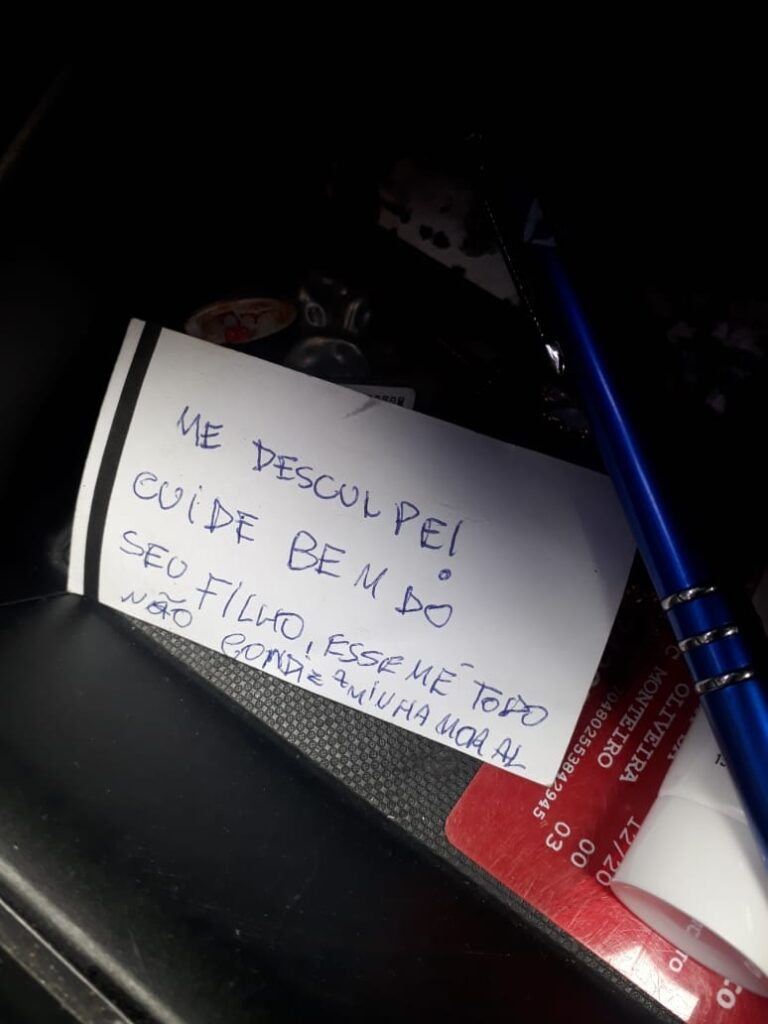 ME DESCULPE!
CUIDE BEM DO
SEU FILHO, ESSE MÉTODO
NÃO CONDIZ A MINHA MORAL
OLIVEIRA
MONTEIRO
704802553842945
12/20
00
03